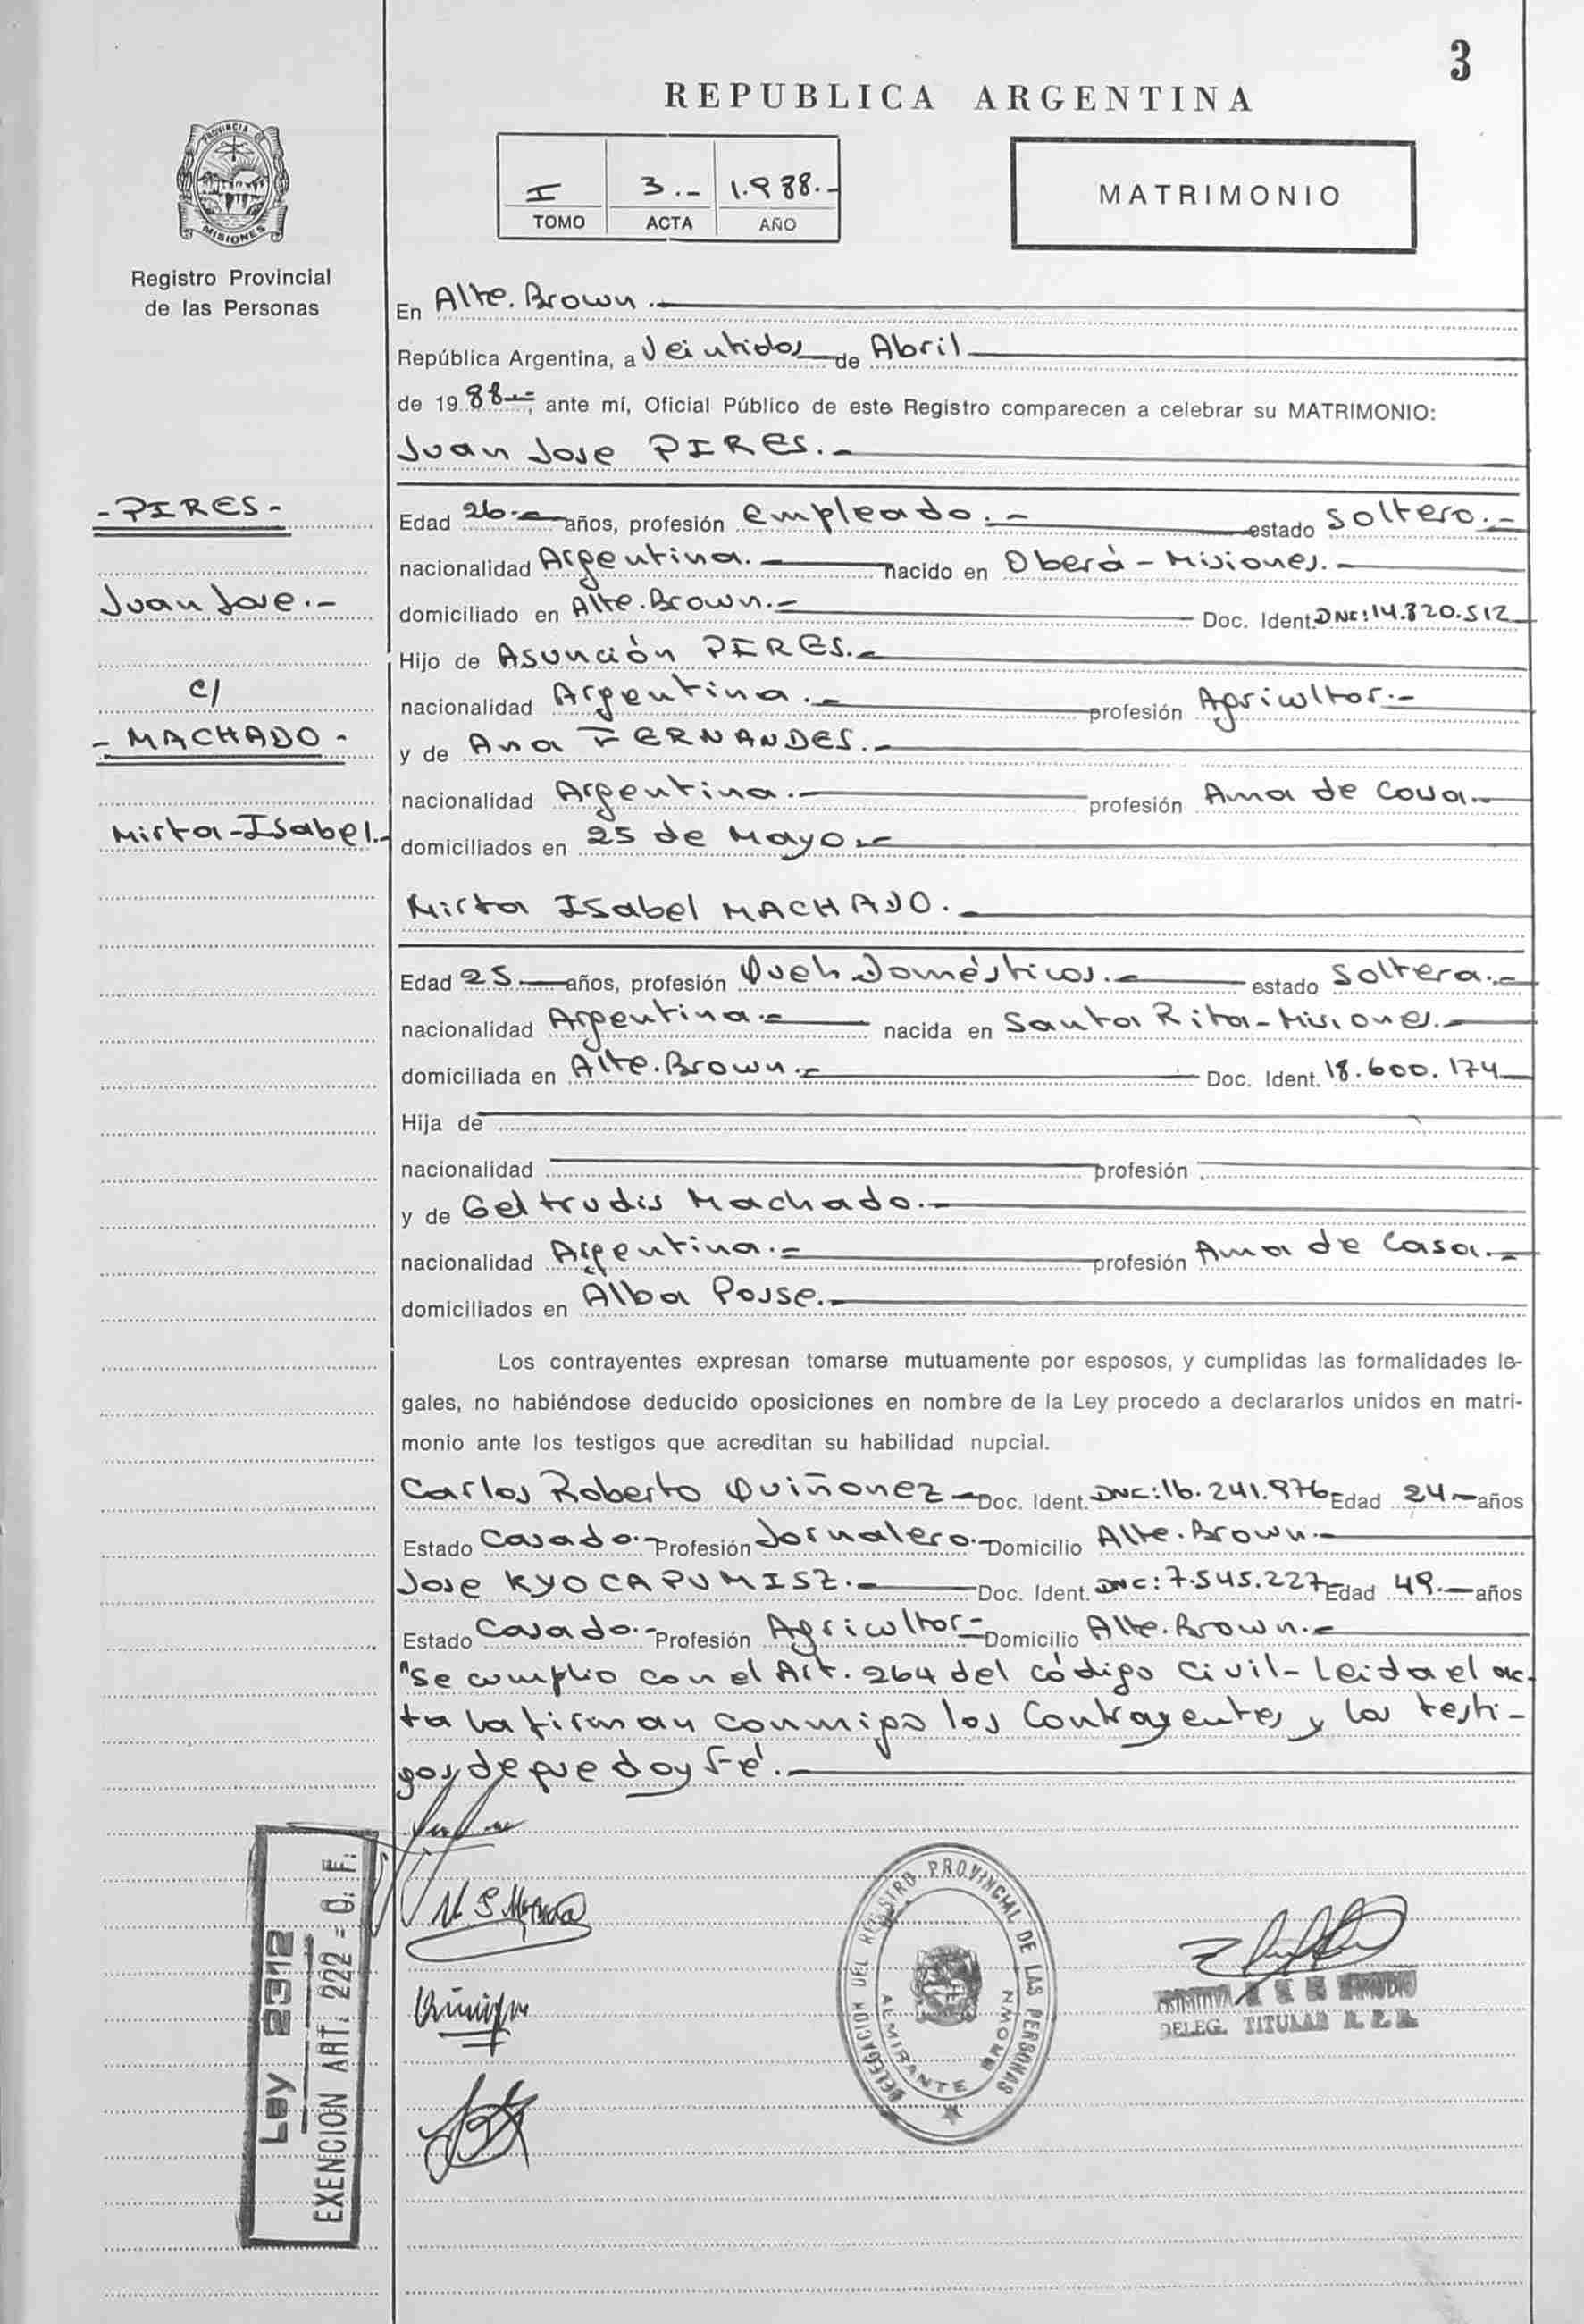 3
REPUBLICA ARGENTINA
PROVINCIA DE
MISIONES
Registro Provincial
de las Personas
I 3.- 1.988.-
TOMO ACTA AÑO
MATRIMONIO
En Alte. Brown.-
República Argentina, a Veintidos de Abril
de 1988-, ante mí, Oficial Público de este Registro comparecen a celebrar su MATRIMONIO:
Juan Jose PIRES.-
- PIRES -
Juan Jose.-
c/
- MACHADO -
Mirta-Isabel.-
Edad 26.- años, profesión empleado.- estado Soltero.-
nacionalidad Argentina.- nacido en Oberá - Misiones.-
domiciliado en Alte. Brown.- Doc. Ident. DNI: 14.820.512
Hijo de Asunción PIRES.-
nacionalidad Argentina.- profesión Agricultor.-
y de Ana FERNANDES.-
nacionalidad Argentina.- profesión Ama de Casa.-
domiciliados en 25 de Mayo.-
Mirta Isabel MACHADO.-
Edad 25.- años, profesión Queh. Domésticos.- estado Soltera.-
nacionalidad Argentina.- nacida en Santa Rita-Misiones.-
domiciliada en Alte. Brown.- Doc. Ident. 18.600.174
Hija de
nacionalidad profesión
y de Geltrudis Machado.-
nacionalidad Argentina.- profesión Ama de Casa.-
domiciliados en Alba Posse.-
Los contrayentes expresan tomarse mutuamente por esposos, y cumplidas las formalidades le-
gales, no habiéndose deducido oposiciones en nombre de la Ley procedo a declararlos unidos en matri-
monio ante los testigos que acreditan su habilidad nupcial.
Carlos Roberto Quiñonez - Doc. Ident. DNI: 16.241.976 Edad 24.- años
Estado Casado.- Profesión Jornalero.- Domicilio Alte. Brown.-
Jose KYOCAPUMISZ.- Doc. Ident. DNI: 7.545.227 Edad 49.- años
Estado Casado.- Profesión Agricultor- Domicilio Alte. Brown.-
"Se cumplio con el Art. 264 del código Civil- Leida el ac-
ta la firman conmigo los Contrayentes y los testi-
gos de que doy fé.-
Ley 2312
EXENCION ART. 222 - O. F.
DELEGACION DEL REGISTRO PROVINCIAL DE LAS PERSONAS
ALMIRANTE BROWN
DELEG. TITULAR R. P. P.